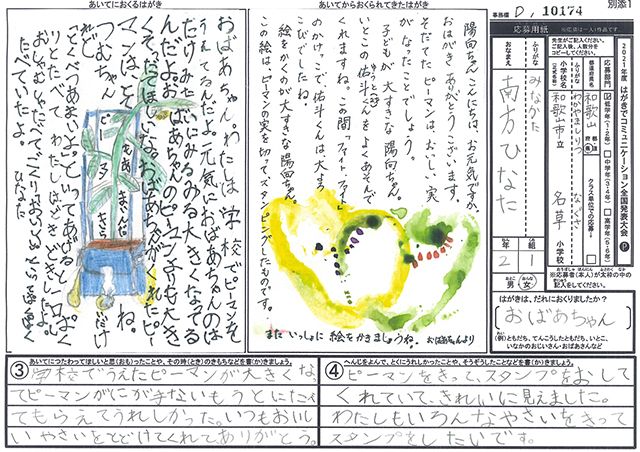 別添1
事務標 D, 10174
あいてにおくるはがき
あいてからおくられてきたはがき
応募用紙
※応募は一人1作品です。
先生がご記入ください。
ご記入後、人数分を
コピーしてください。
2021年度 はがきでコミュニケーション全国発表大会
応募部門
低学年(1・2年)
中学年(3・4年)
高学年(5・6年)
クラス単位での応募
都道府県名
和歌山
ふりがな
わかやましりつ なぐさ
小学校名
(正式名)
和歌山市立 名草 小学校
ふりがな
みなかた
おなまえ
南方ひなた
2 年
1 組
おとこ 男
おんな 女
※応募者(本人)が太枠の中の
記入をしてください。
はがきは、だれにおくりましたか?
おばあちゃん
(例)ともだち、てんこうしたともだち、いとこ、
いなかのおじいさん・おばあさんなど
おばあちゃん。わたしは、学校でピーマンを
うえてるんだよ。元気におばあちゃんのは
たけみたいにみるみる大きくなってる
んだよ。おばあちゃんのピーマンよりも大き
マンはとく
つむちゃん
ね。
ひなた
陽向ちゃんこんにちは、お元気ですか。
おはがきをありがとうございます。
そだてたピーマンは、おいしい実
がなったことでしょう。
子どもが大すきな陽向ちゃん。
いとこの佑斗くんをよくあそんで
くれますね。この間「ファイト、ファイト」
のかけごえで佑斗くんは大よろ
こびでしたね。
絵をかくのが大すきな陽向ちゃん。
この絵は、ピーマンの実を切ってスタンピングしたものです。
また いっしょに 絵をかきましょうね。 おばあちゃんより
③ あいてにつたわってほしいと思(おも)ったことや、その時(とき)のきもちなどを書(か)きましょう。
学校でうえたピーマンが大きくな
てもらえてうれしかった。いつもおいし
いやさいをとどけてくれてありがとう。
④ へんじをよんで、とくにうれしかったことや、そうぞうしたことなどを書(か)きましょう。
ピーマンをきって、スタンプをおして
くれていて、きれいに見えました。
わたしもいろんなやさいをきって
スタンプをしたいです。